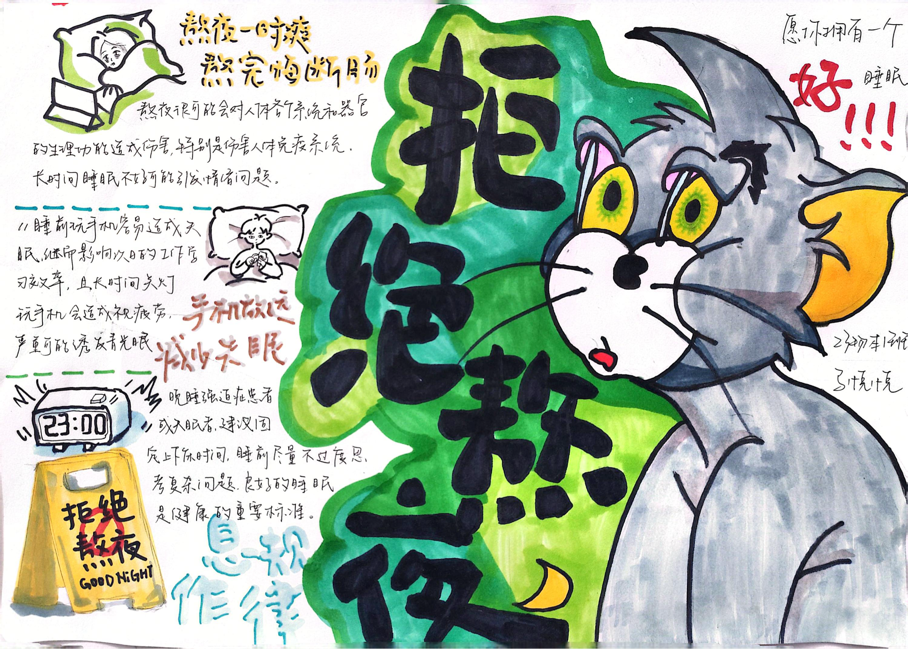 熬夜一时爽
熬完悔断肠
熬夜很可能会对人体各个系统和器官
的生理功能造成伤害,特别是伤害人体免疫系统.
长时间睡眠不好可能引发情绪问题。
睡前玩手机容易造成失
眠,继而影响次日的工作学
习效率,且长时间关灯
玩手机会造成视疲劳,
严重可能诱发青光眼
手机放远
减少失眠
23:00
晚睡强迫症患者
或失眠者,建议固
定上下床时间,睡前尽量不过度思
考复杂问题.良好的睡眠
是健康的重要标准。
拒绝
熬夜
GOOD NiGHT
息规
作律
拒
绝
熬
夜
愿你拥有一个
好 睡眠
!!!